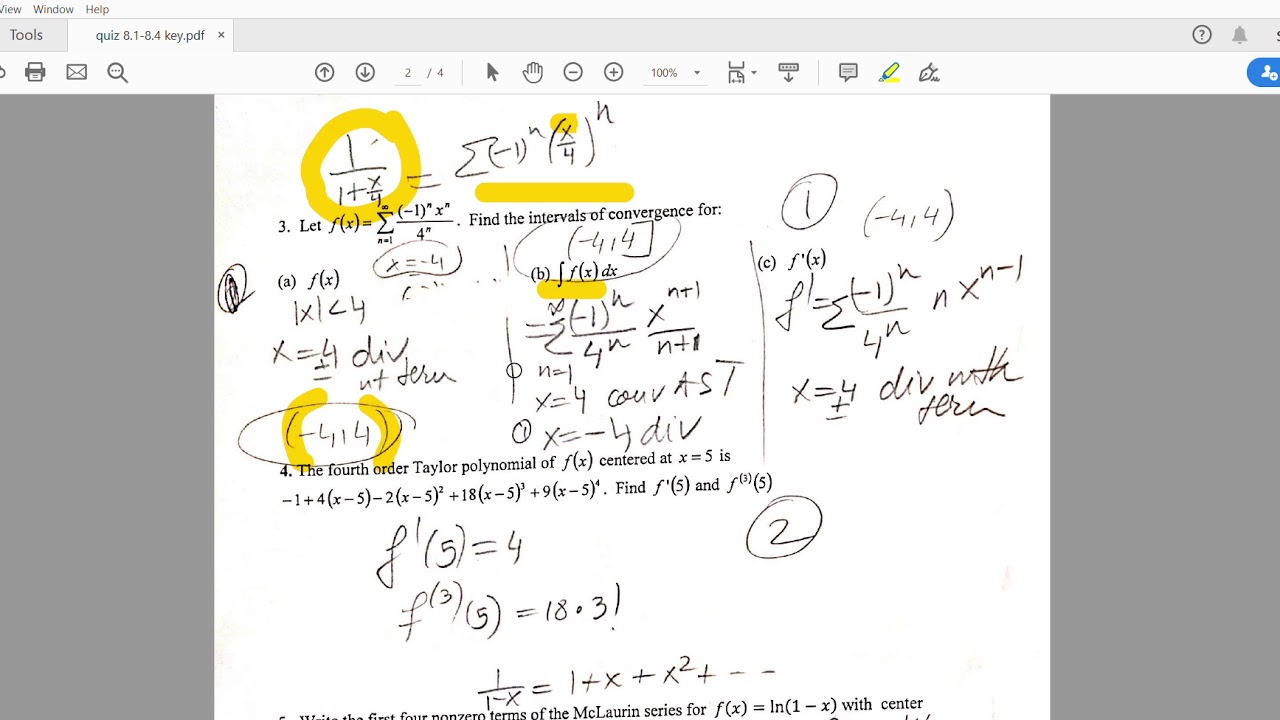 View Window Help
Tools quiz 8.1-8.4 key.pdf ×
2 / 4 100%
1/(1+x/4) = Σ(-1)^n (x/4)^n
3. Let f(x)= ∑_{n=1}^{∞} (-1)^n x^n / 4^n . Find the intervals of convergence for:
1 (-4,4)
(-4,4]
x=-4
(a) f(x)
|x|<4
x=±4 div
nt term
(-4,4)
(b) ∫ f(x) dx
= Σ_{n=1}^{∞} (-1)^n/4^n x^{n+1}/(n+1)
x=4 conv AST
x=-4 div
(c) f'(x)
f'=Σ (-1)^n/4^n n x^{n-1}
x=±4 div nth
term
4. The fourth order Taylor polynomial of f(x) centered at x = 5 is
-1+4(x-5)-2(x-5)²+18(x-5)³+9(x-5)⁴. Find f'(5) and f⁽³⁾(5)
2
f'(5)=4
f⁽³⁾(5)=18·3!
1/(1-x) = 1+x+x²+---
5. Write the first four nonzero terms of the McLaurin series for f(x) = ln(1-x) with center